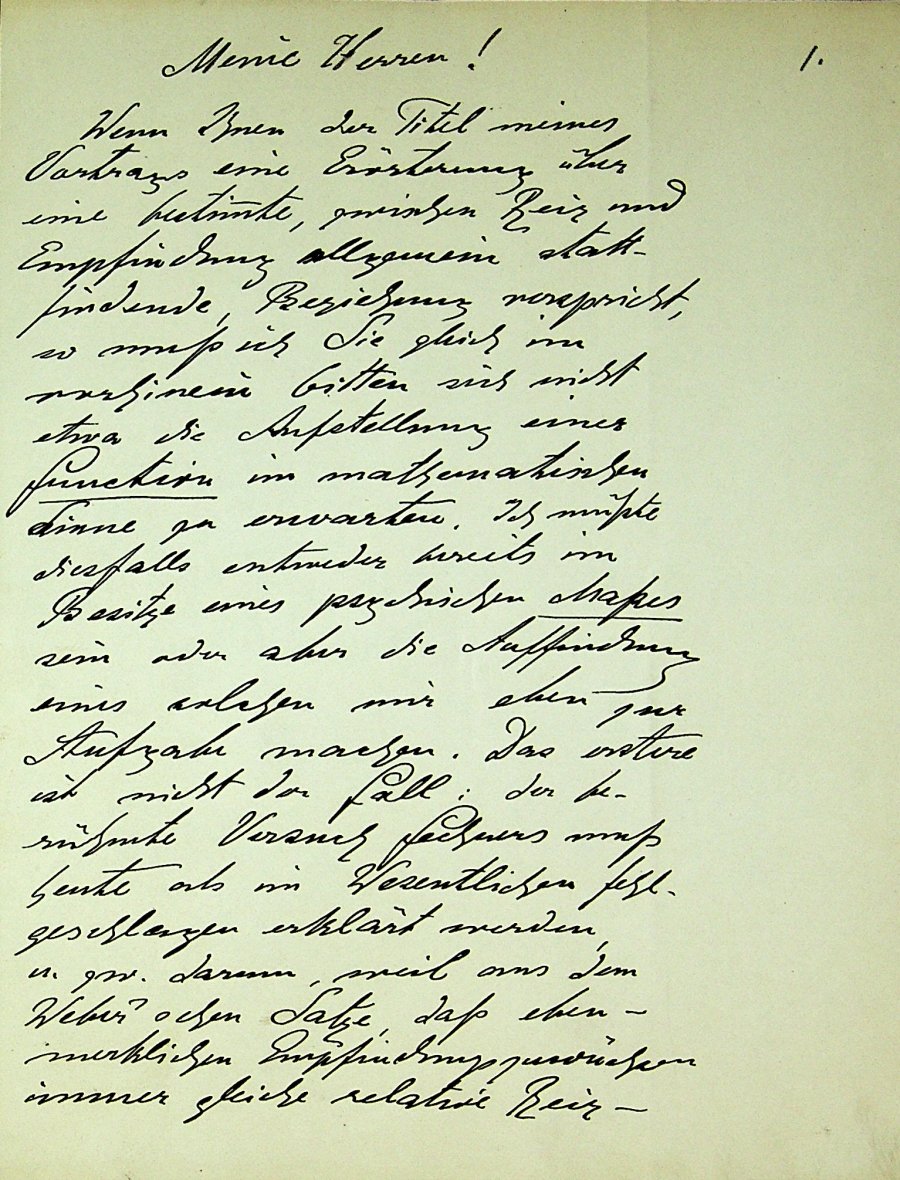 Meine Herren! 1.
Wenn Ihnen der Titel meines
Vortrags eine Erörterung über
eine bestimte, zwischen Reiz und
Empfindung allgemein statt-
findende, Beziehung verspricht,
so muß ich Sie gleich im
vorhinein bitten sich nicht
etwa die Aufstellung einer
Function im mathematischen
Sinne zu erwarten. Ich müßte
diesfalls entweder bereits im
Besitze eines psychischen Maßes
sein oder aber die Auffindung
eines solchen mir eben zur
Aufgabe machen. Das erstere
ist nicht der Fall: der be-
rühmte Versuch Fechners muß
heute als im Wesentlichen fehl-
geschlagen erklärt werden,
u. zw. darum, weil aus dem
Weber'schen Satze, daß eben-
merklichen Empfindungszuwüchsen
immer gleiche relative Reiz-